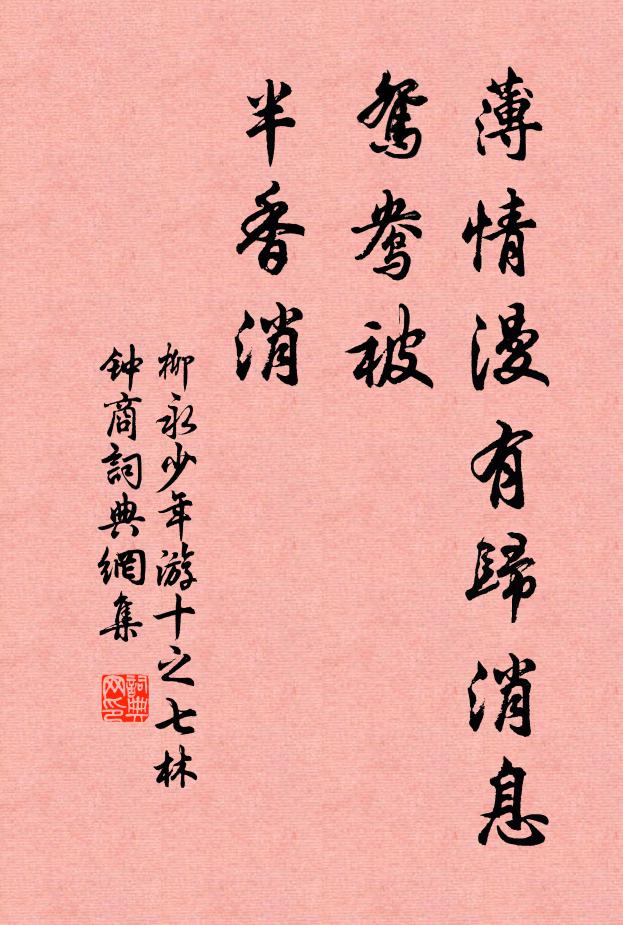 薄情漫有歸消息
鴛鴦被
半香消
柳永少年游十之七林
钟商詞典網集
詞典
网印